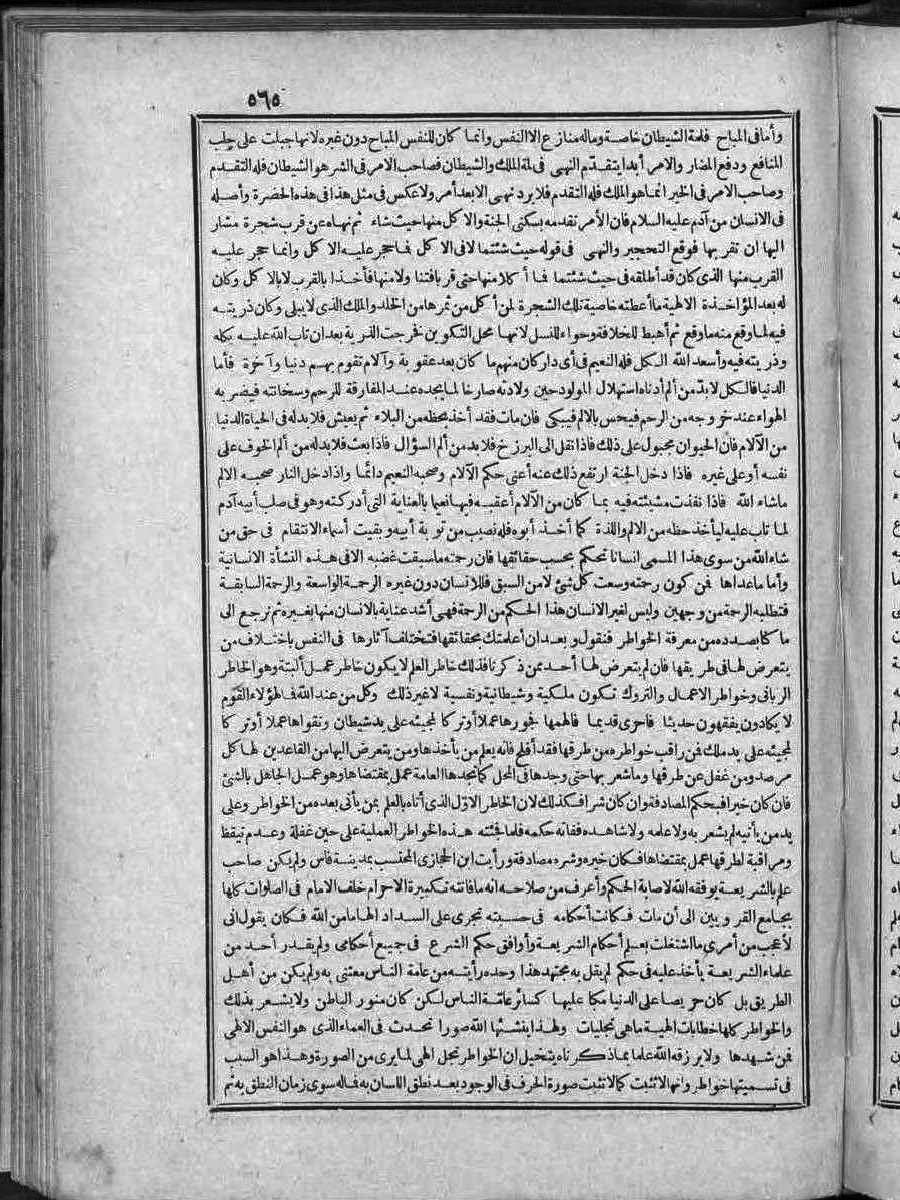 ٥٦٥
وأما في المباح فلمة الشيطان خاصة وماله منازع الا النفس وانما كان للنفس المباح دون غيره لانها جبلت على جلب
المنافع ودفع المضار والامر أبدا يتقدّم النهى فى لمة الملك والشيطان فصاحب الامر فى الشر هو الشيطان فله التقدم
وصاحب الامر فى الخير انما هو الملك فله التقدم فلا يرد نهى الا بعد أمر ولا عكس فى مثل هذا فى هذه الحضرة وأصله
فى الانسان من آدم عليه السلام فان الأمر تقدمه بسكنى الجنة والاكل منها حيث شاء ثم نهاه عن قرب شجرة مشار
اليها ان تقربها فوقع التحجير والنهى فى قوله حيث شئتما لا فى الاكل فما حجر عليه الاكل وانما حجر عليه
القرب منها الذى كان قد أطلقه فى حيث شئتما فما أكلا منها حتى قربا فتنا ولا منها فأخذا بالقرب لا بالاكل وكان
له بعد المؤاخذة الالهية ما أعطته خاصية تلك الشجرة لمن أكل من ثمرها من الخلد والملك الذى لا يبلى وكان ذريته
فيه لما وقع منه ما وقع ثم أهبط للخلافة وحواء للنسل لانها محل التكوين فخرجت الذرية بعد ان تاب الله عليه بكله
وذريته فيه وأسعد الله الكل فله النعيم فى أى دار كان منهم ما كان بعد عقوبة وآلام تقوم بهم دنيا وآخرة فأما
الدنيا فالكل لا بدّ من ألم أدناه استهلال المولود حين ولادته صارخا لما يجده عند المفارقة للرحم وسخانته فيضر به
الهواء عند خروجه من الرحم فيحس بالالم فيبكى فان مات فقد أخذ بحظه من البلاء ثم يعيش فلا بد له فى الحياة الدنيا
من الآلام فان الحيوان مجبول على ذلك فاذا نقل الى البرزخ فلا بد من ألم السؤال فاذا بعث فلا بد له من ألم الخوف على
نفسه أو على غيره فاذا دخل الجنة ارتفع ذلك عنه أعنى حكم الآلام وصحبه النعيم دائما واذا دخل النار صحبه الالم
ما شاء الله فاذا نفذت مشيئته فيه بما كان من الآلام أعقبه فيها نعيما بالعناية التى أدركته وهو فى صلب أبيه آدم
لما تاب عليه ليأخذ حظه من الالم واللذة كما أخذ أبوه فله نصيب من توبة أبيه وبقيت أسماء الانتقام فى حق من
شاء الله من سوى هذا المسمى انسانا تحكم بحسب حقائقها فان رحمته ما سبقت غضبه الا فى هذه النشأة الانسانية
وأما ما عداها فمن كون رحمته وسعت كل شئ لا من السبق فللانسان دون غيره الرحمة الواسعة والرحمة السابقة
فتطلبه الرحمة من وجهين وليس لغير الانسان هذا الحكم من الرحمة فهى أشد عناية بالانسان منها بغيره ثم نرجع الى
ما كنا بصدده من معرفة الخواطر فنقول وبعد ان أعلمتك بحقائقها فتختلف آثارها فى النفس باختلاف من
يتعرض لها فى طريقها فان لم يتعرض لها أحد ممن ذكرنا فذلك خاطر العلم لا يكون خاطر عمل ألبتة وهو الخاطر
الربانى وخواطر الاعمال والتروك تكون ملكية وشيطانية ونفسية لا غير ذلك وكل من عند الله فما لهؤلاء القوم
لا يكادون يفقهون حديثا فاحرى قديما فالهمها فجورها عملا أو تركا لمجيئه على يد شيطان وتقواها عملا أو تركا
لمجيئه على يد ملك فمن راقب خواطره من طرقها فقد أفلح فانه يعلم من يأخذها ومن يتعرض اليها من القاعدين لها كل
مرصد ومن غفل عن طرقها وما شعر بها حتى وجدها فى المحل كما تجدها العامة عمل بمقتضاها وهو عمل الجاهل بالشئ
فان كان خيرا فبحكم المصادفة وان كان شرا فكذلك لان الخاطر الاوّل الذى أتاه بالعلم بمن يأتى بعده من الخواطر وعلى
يد من يأتيه لم يشعر به ولا علمه ولا شاهده ففاته حكمه فلما فجئته هذه الخواطر العملية على حين غفلة وعدم تيقظ
ومراقبة لطرقها عمل بمقتضاها فكان خيره وشره مصادفة ورأيت ابن الحجازى المحتسب بمدينة فاس ولم يكن صاحب
علم بالشريعة يوفقه الله لاصابة الحكم وأعرف من صلاحه انه ما فاتته تكبيرة الاحرام خلف الامام فى الصلوات كلها
بجامع القرويين الى أن مات فكانت أحكامه فى حسبته تجرى على السداد الهاما من الله فكان يقول انى
لأعجب من أمرى ما اشتغلت بعلم أحكام الشريعة وأوافق حكم الشرع فى جميع أحكامى ولم يقدر أحد من
علماء الشريعة يأخذ عليه فى حكم لم يقل به مجتهد هذا وحده رأيته من عامة الناس معتنى به ولم يكن من أهل
الطريق بل كان حريصا على الدنيا مكبا عليها كسائر عامّة الناس لكن كان منور الباطن ولا يشعر بذلك
والخواطر كلها خطابات الهية ما هى تجليات ولهذا ينشئها الله صورا تحدث فى العماء الذى هو النفس الالهى
فمن شهدها ولا يرزقه الله علما بما ذكرناه يتخيل ان الخواطر تجل الهى لما يرى من الصورة وهذا هو السبب
فى تسميتها خواطر وانها لا تثبت كما لا تثبت صورة الحرف فى الوجود بعد نطق اللسان به فما له سوى زمان النطق به ثم